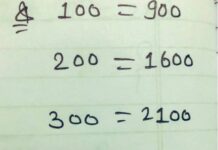 Q 100 = 900
200 = 1600
300 = 2100